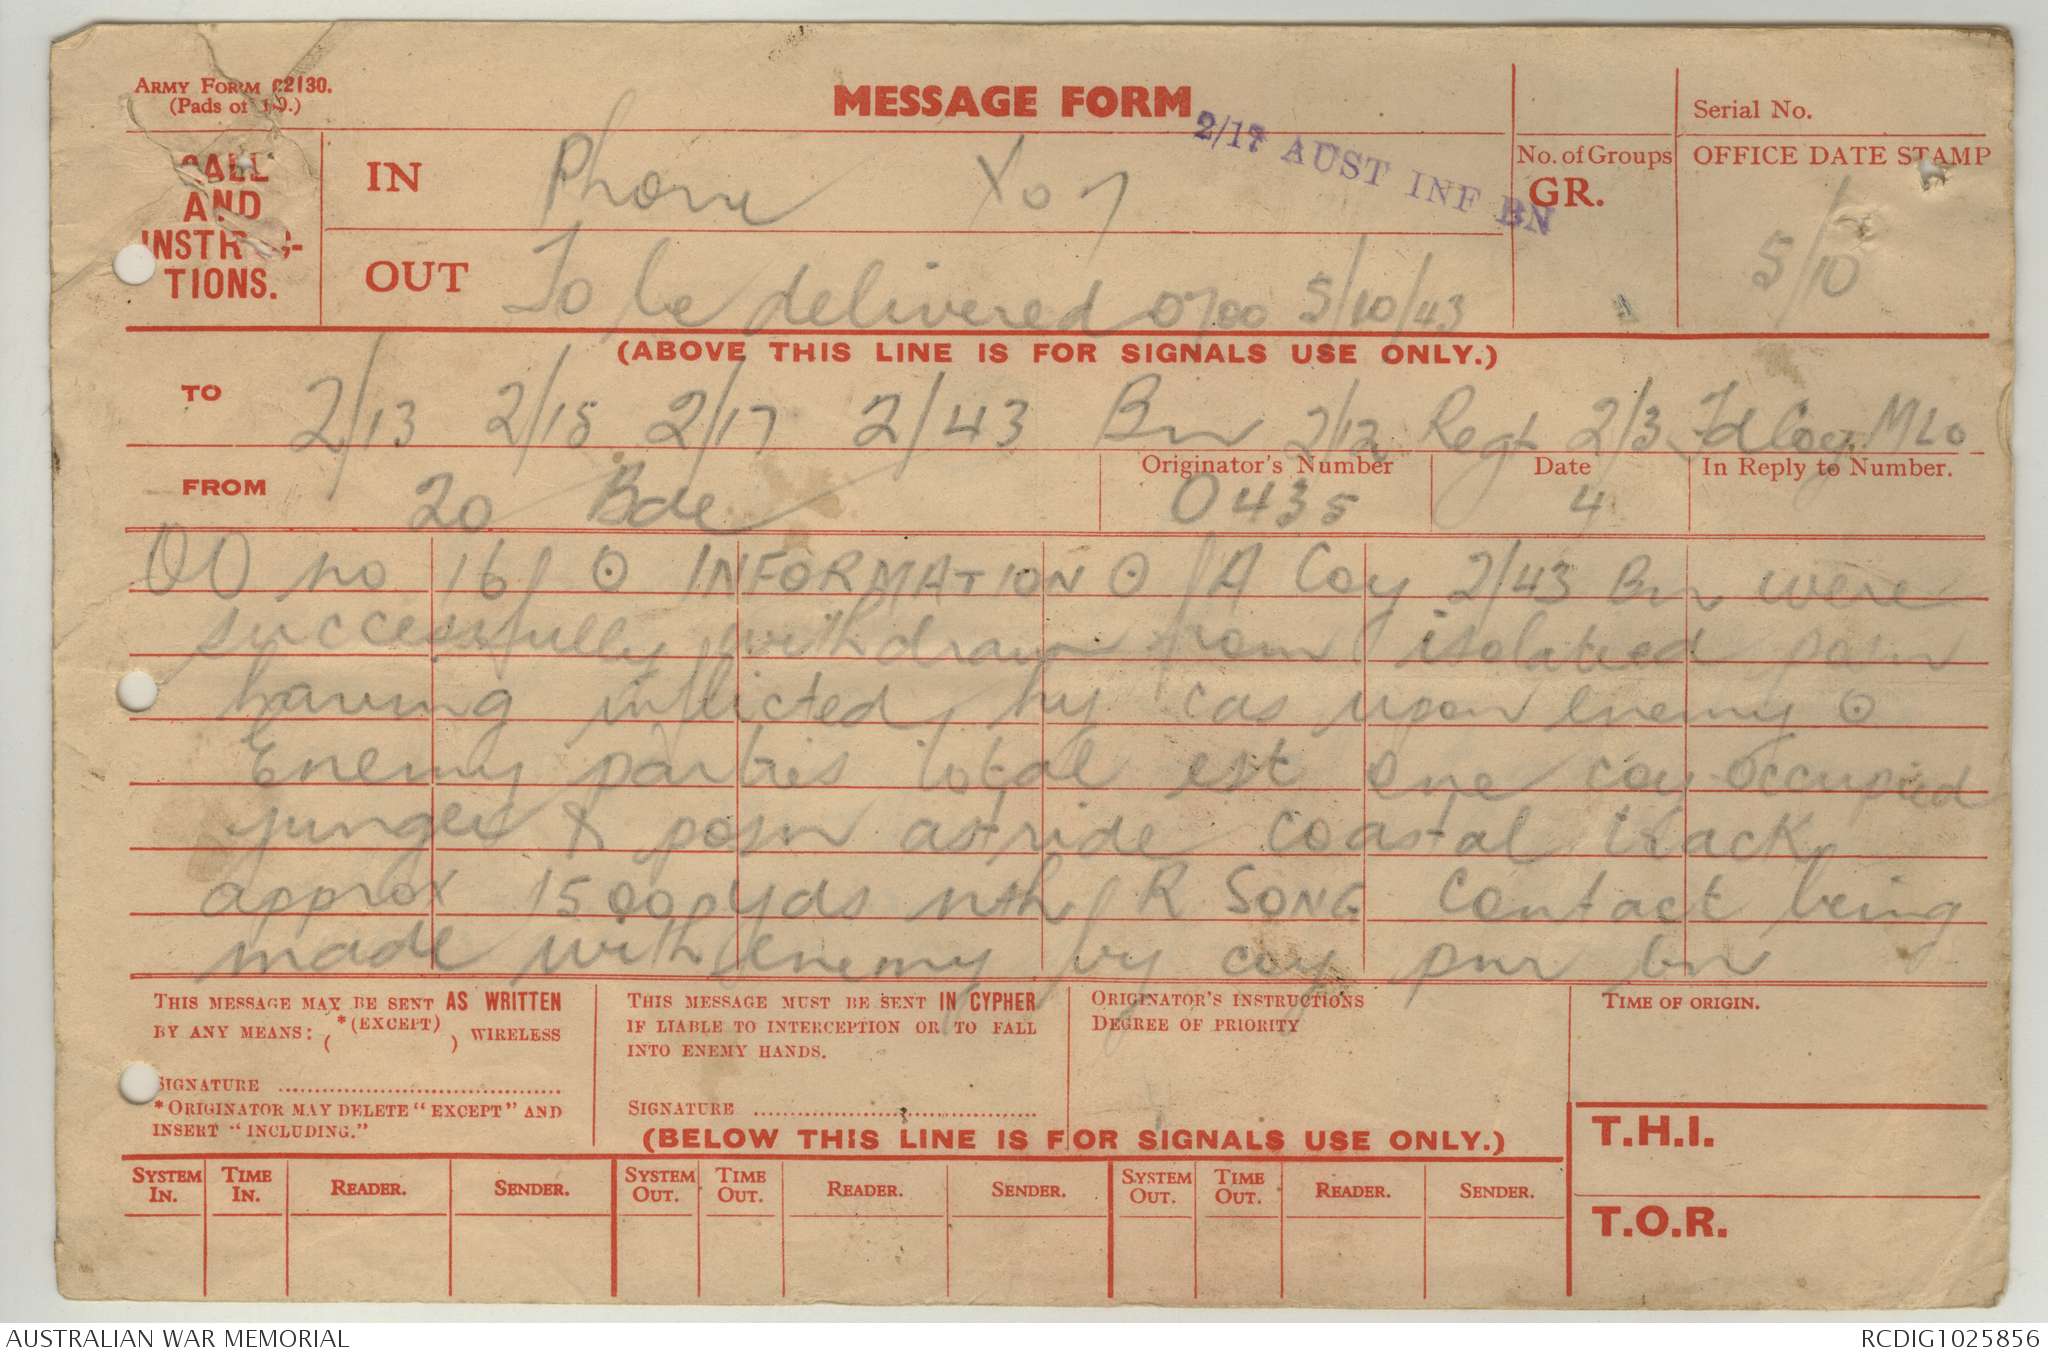 ARMY FORM C2130.
(Pads of 100.)
MESSAGE FORM
Serial No.
2/17 AUST INF BN
CALL
AND
INSTRUC-
TIONS.
IN Phone
No. of Groups
GR.
OFFICE DATE STAMP
5/10
OUT To be delivered 0700 5/10/43
(ABOVE THIS LINE IS FOR SIGNALS USE ONLY.)
TO 2/13 2/15 2/17 2/43 Bn 2/12 Regt 2/3 Fd Coy MLO
FROM 20 Bde
Originator's Number O435
Date 4
In Reply to Number.
OO no 16 ⊙ INFORMATION ⊙ A Coy 2/43 Bn were
successfully withdrawn from isolated posn
having inflicted hy cas upon enemy ⊙
Enemy parties total est one coy occupied
posn astride coastal track
approx 1500 yds nth R SONG Contact being
made with enemy by coy pnr bn
THIS MESSAGE MAY BE SENT AS WRITTEN
BY ANY MEANS: (*(EXCEPT) ) WIRELESS
SIGNATURE
*ORIGINATOR MAY DELETE "EXCEPT" AND
INSERT "INCLUDING."
THIS MESSAGE MUST BE SENT IN CYPHER
IF LIABLE TO INTERCEPTION OR TO FALL
INTO ENEMY HANDS.
SIGNATURE
ORIGINATOR'S INSTRUCTIONS
DEGREE OF PRIORITY
TIME OF ORIGIN.
(BELOW THIS LINE IS FOR SIGNALS USE ONLY.)
T.H.I.
T.O.R.
SYSTEM IN. TIME IN. READER. SENDER. SYSTEM OUT. TIME OUT. READER. SENDER. SYSTEM OUT. TIME OUT. READER. SENDER.
AUSTRALIAN WAR MEMORIAL
RCDIG1025856